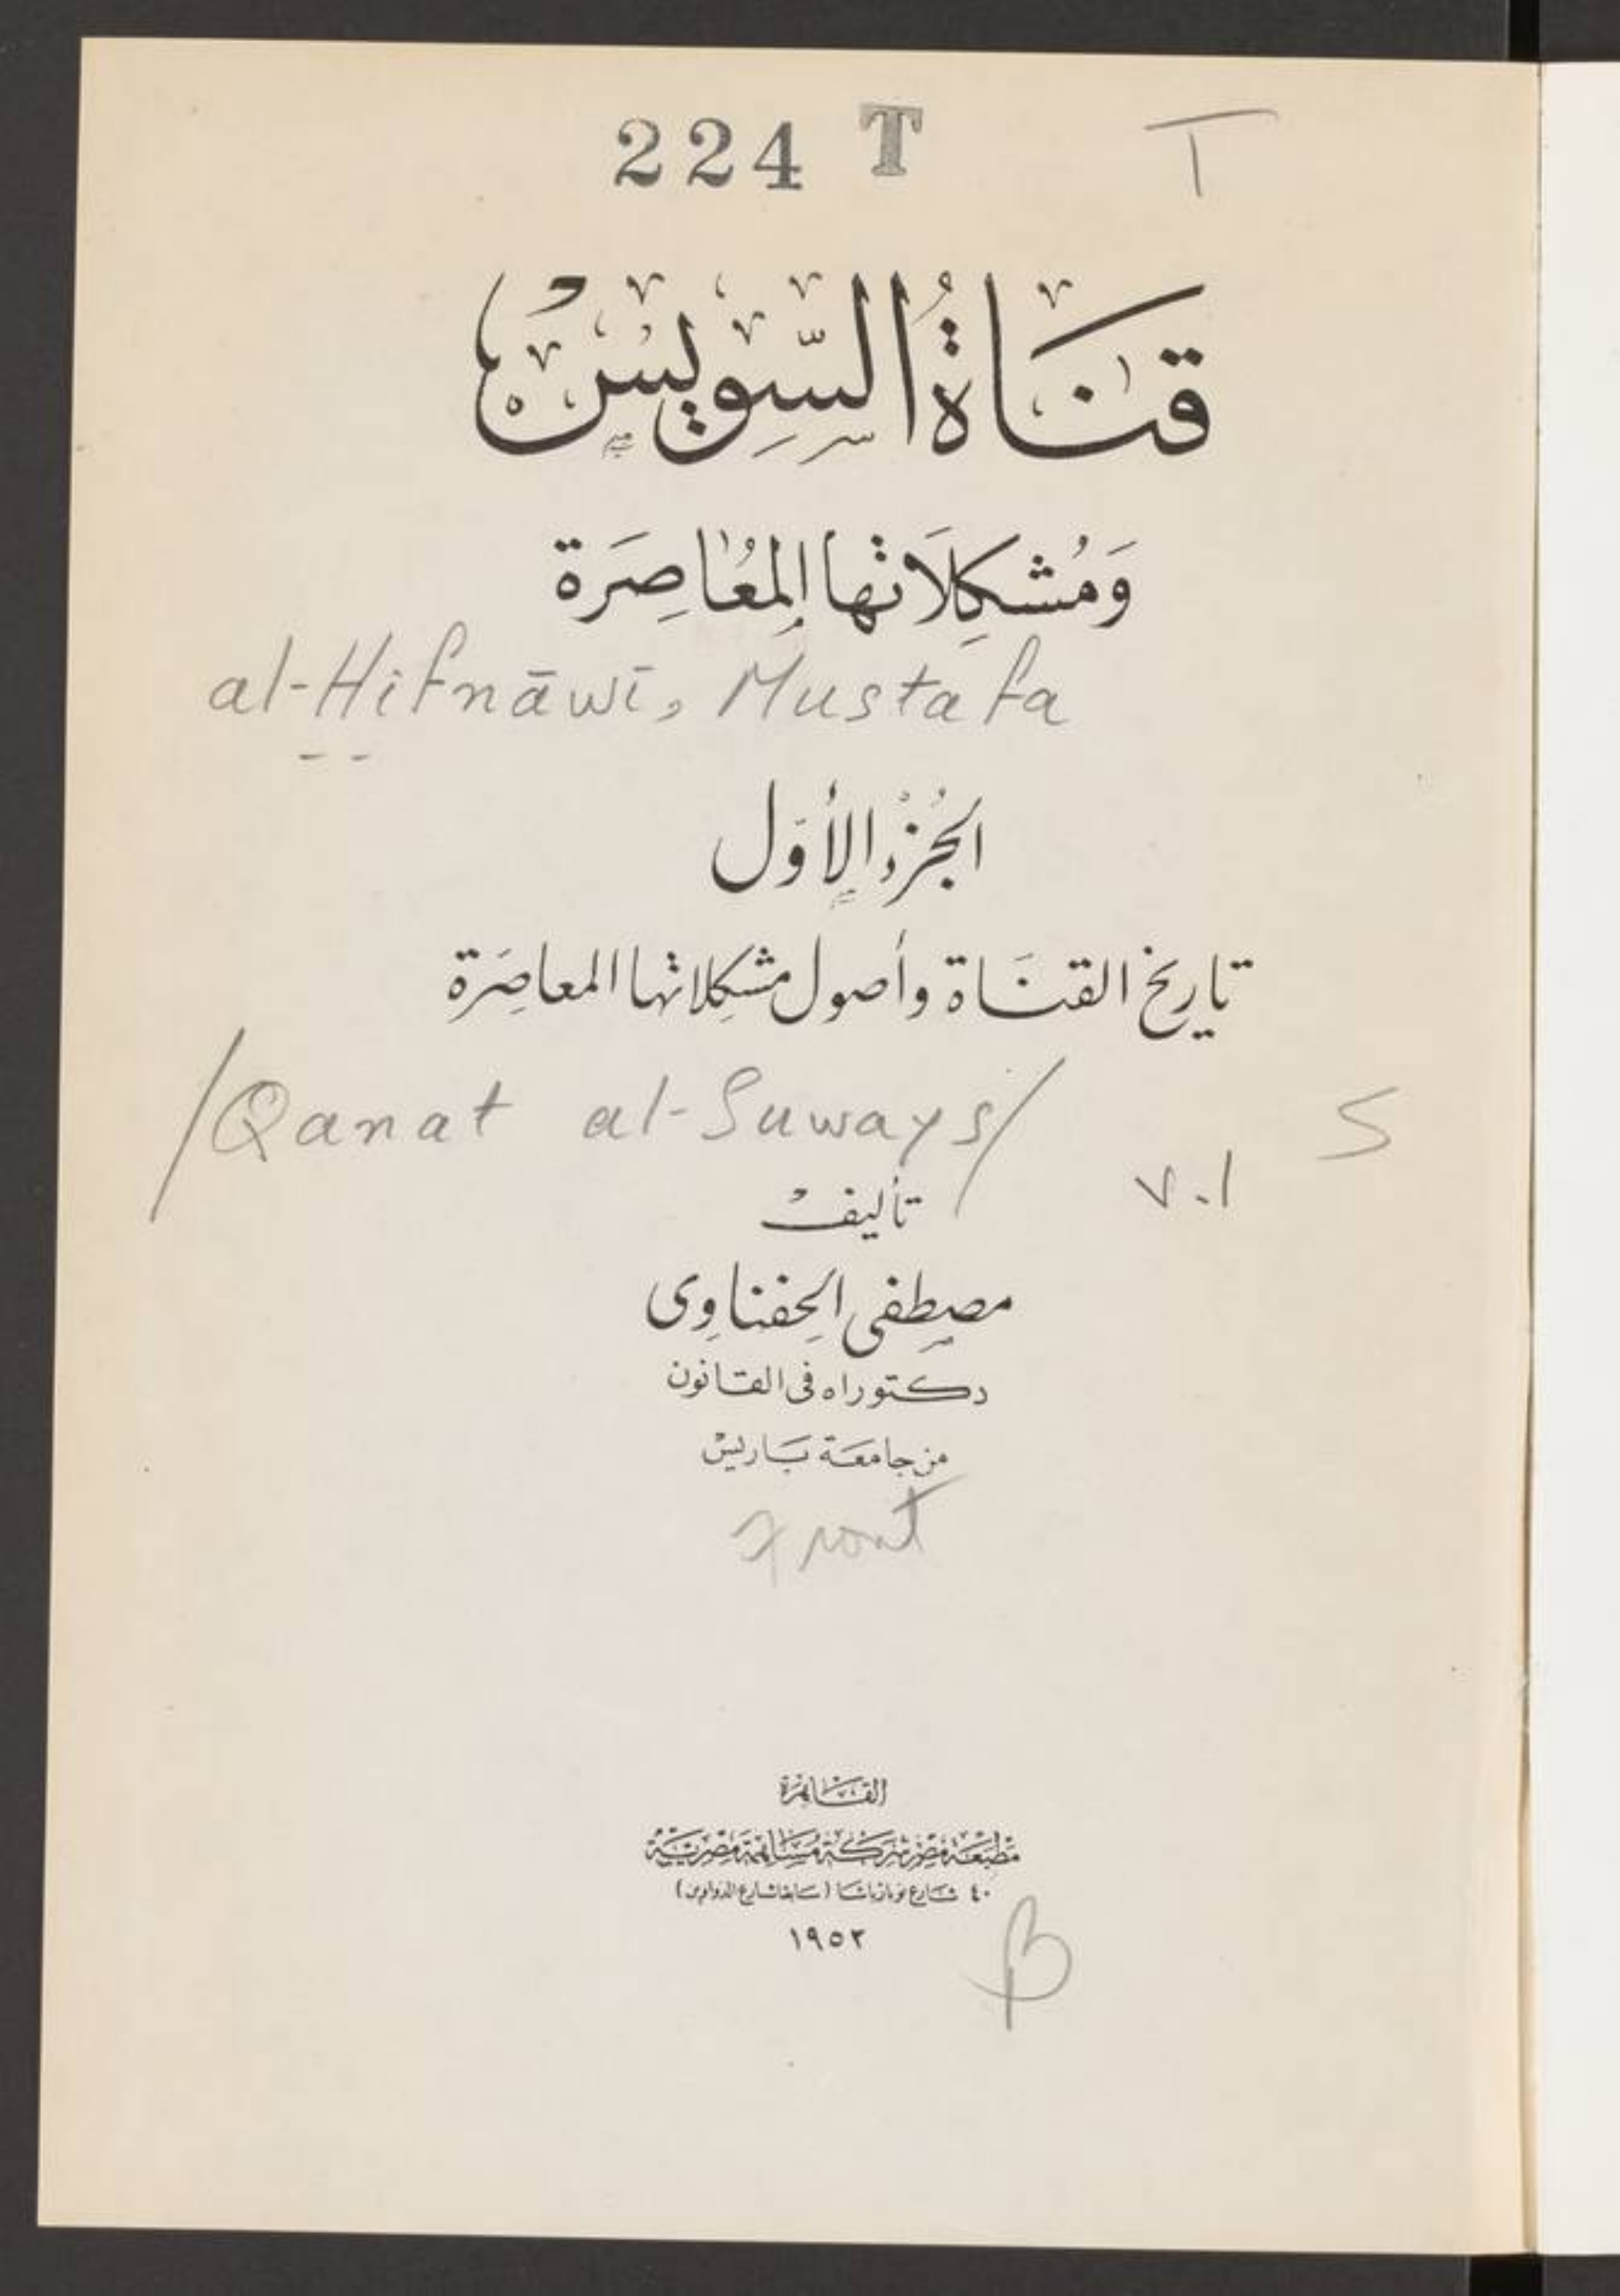 224 T T
قناةُ السِّويسْ
وَمُشكِلَاتها المُعاصِرَة
al-Hifnāwī, Mustafa
الجُزْءُ الأوّل
تاريخ القنَاة وأصول مشكِلاتها المعاصِرَة
/Qanat al-Suways/
S
v.1
تأليفْ
مصطفى الحِفناوِى
دكتوراه فى القانون
من جامعَة بَاريسْ
Front
القَاهِرَة
مَطبَعَة مِصْر شركَة مُسَاهِمَة مِصْريَّة
٤٠ شارع نوبار باشا (سَابقا شارع الدواوين)
١٩٥٢
B